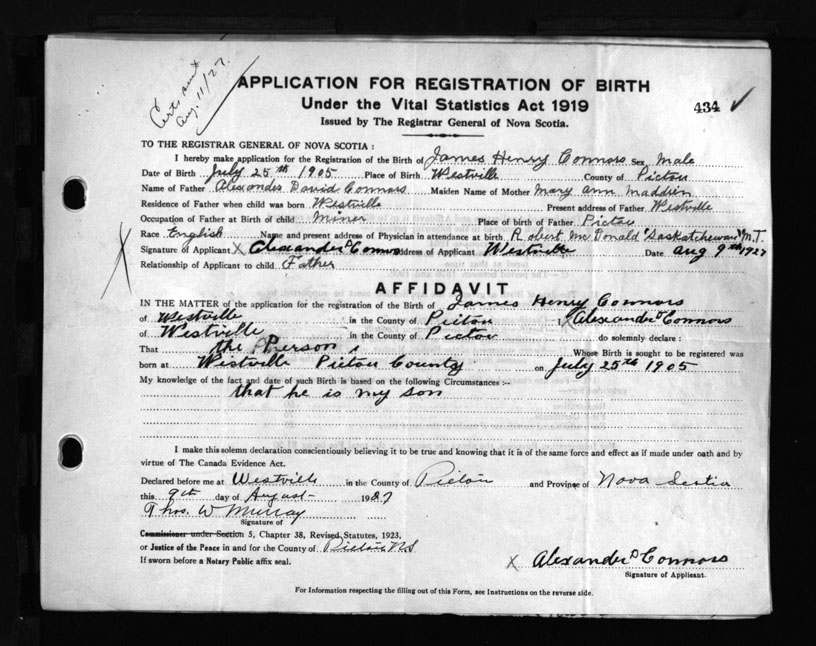 Cert. sent
Aug. 11/27.
APPLICATION FOR REGISTRATION OF BIRTH
Under the Vital Statistics Act 1919
434 ✓
Issued by The Registrar General of Nova Scotia.
TO THE REGISTRAR GENERAL OF NOVA SCOTIA :
I hereby make application for the Registration of the Birth of James Henry Connors Sex Male
Date of Birth July 25th 1905 Place of Birth Westville County of Pictou
Name of Father Alexander David Connors Maiden Name of Mother Mary Ann Maddin
Residence of Father when child was born Westville Present address of Father Westville
Occupation of Father at Birth of child Miner Place of birth of Father Pictou
Race English Name and present address of Physician in attendance at birth Robert McDonald "Saskatchewan" N.T.
Signature of Applicant X Alexander D Connors Address of Applicant Westville Date Aug 9th 1927
Relationship of Applicant to child Father
AFFIDAVIT
IN THE MATTER of the application for the registration of the Birth of James Henry Connors
of Westville in the County of Pictou I, X Alexander D Connors
of Westville in the County of Pictou do solemnly declare :
That the Person Whose Birth is sought to be registered was
born at Westville Pictou County on July 25th 1905
My knowledge of the fact and date of such Birth is based on the following Circumstances :-
that he is my son
I make this solemn declaration conscientiously believing it to be true and knowing that it is of the same force and effect as if made under oath and by
virtue of The Canada Evidence Act.
Declared before me at Westville in the County of Pictou and Province of Nova Scotia
this 9th day of August 1927
Thos. W Murray
Signature of
Commissioner under Section 5, Chapter 38, Revised Statutes, 1923,
or Justice of the Peace in and for the County of Pictou N.S.
If sworn before a Notary Public affix seal.
X Alexander D Connors
Signature of Applicant.
For Information respecting the filling out of this Form, see Instructions on the reverse side.